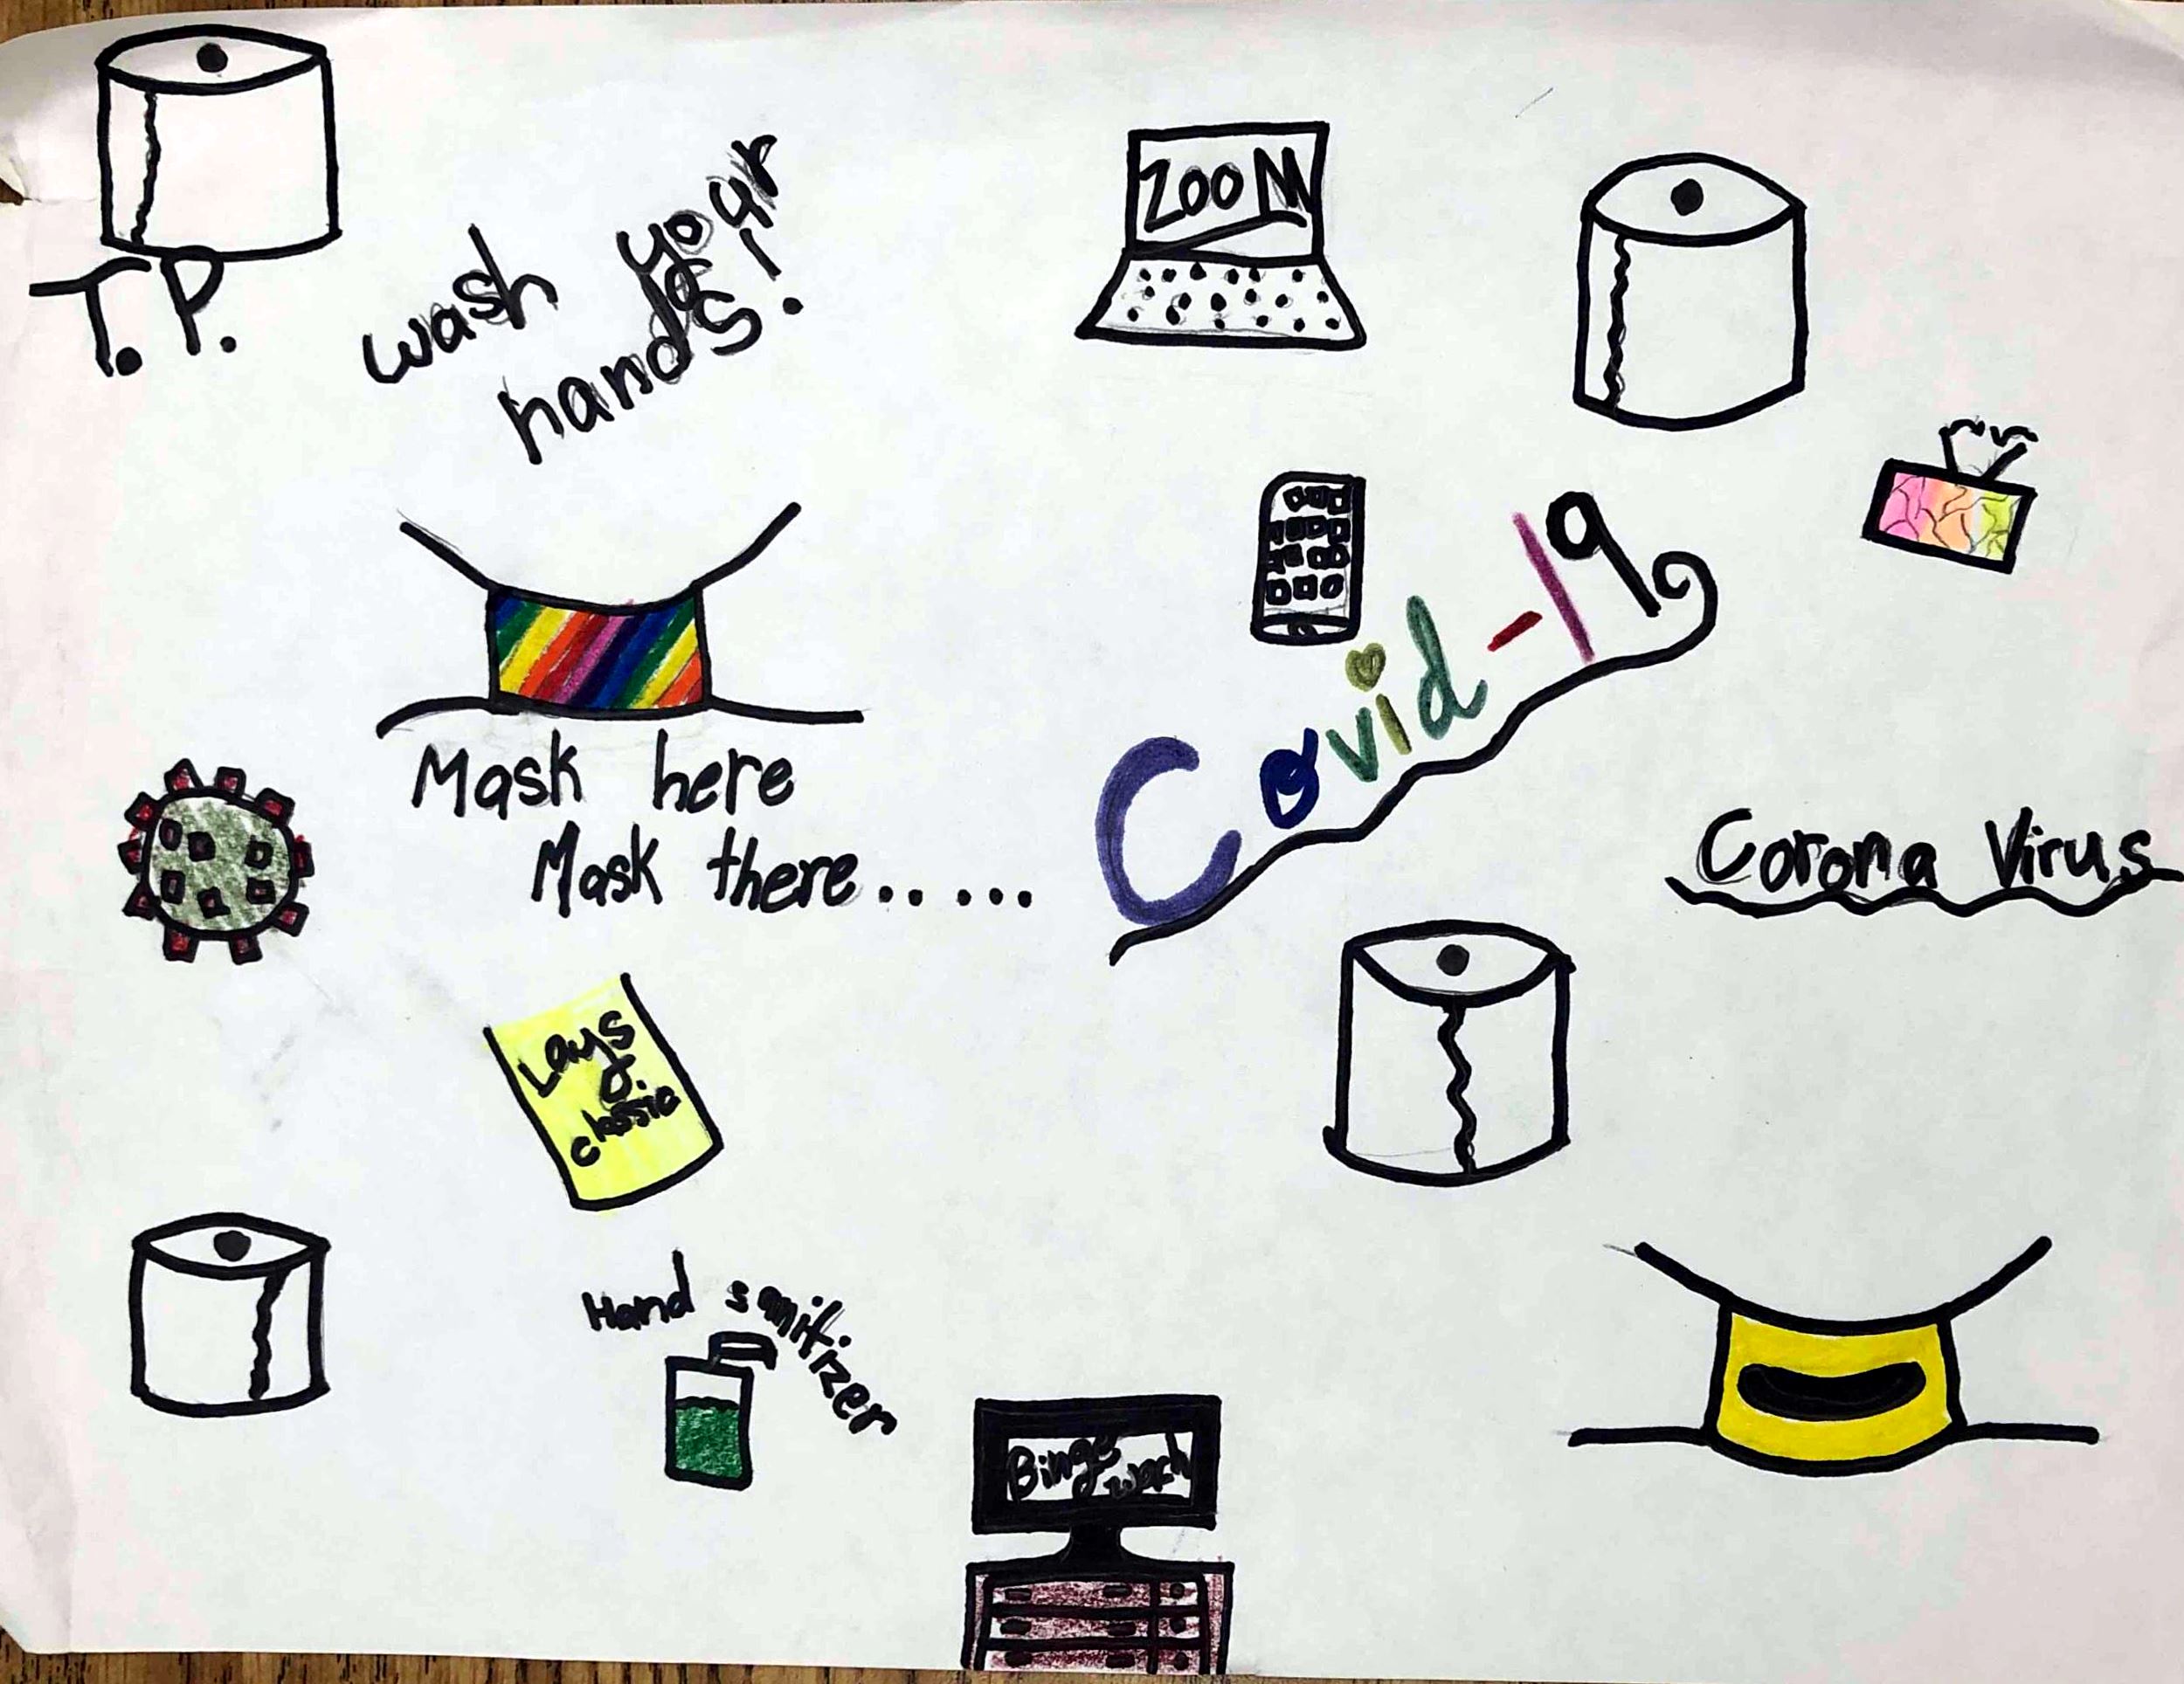 T.P.
wash your
hands!
ZOOM
Covid-19
Mask here
Mask there......
Corona Virus
Lays
classic
Hand sanitizer
Binge
wach